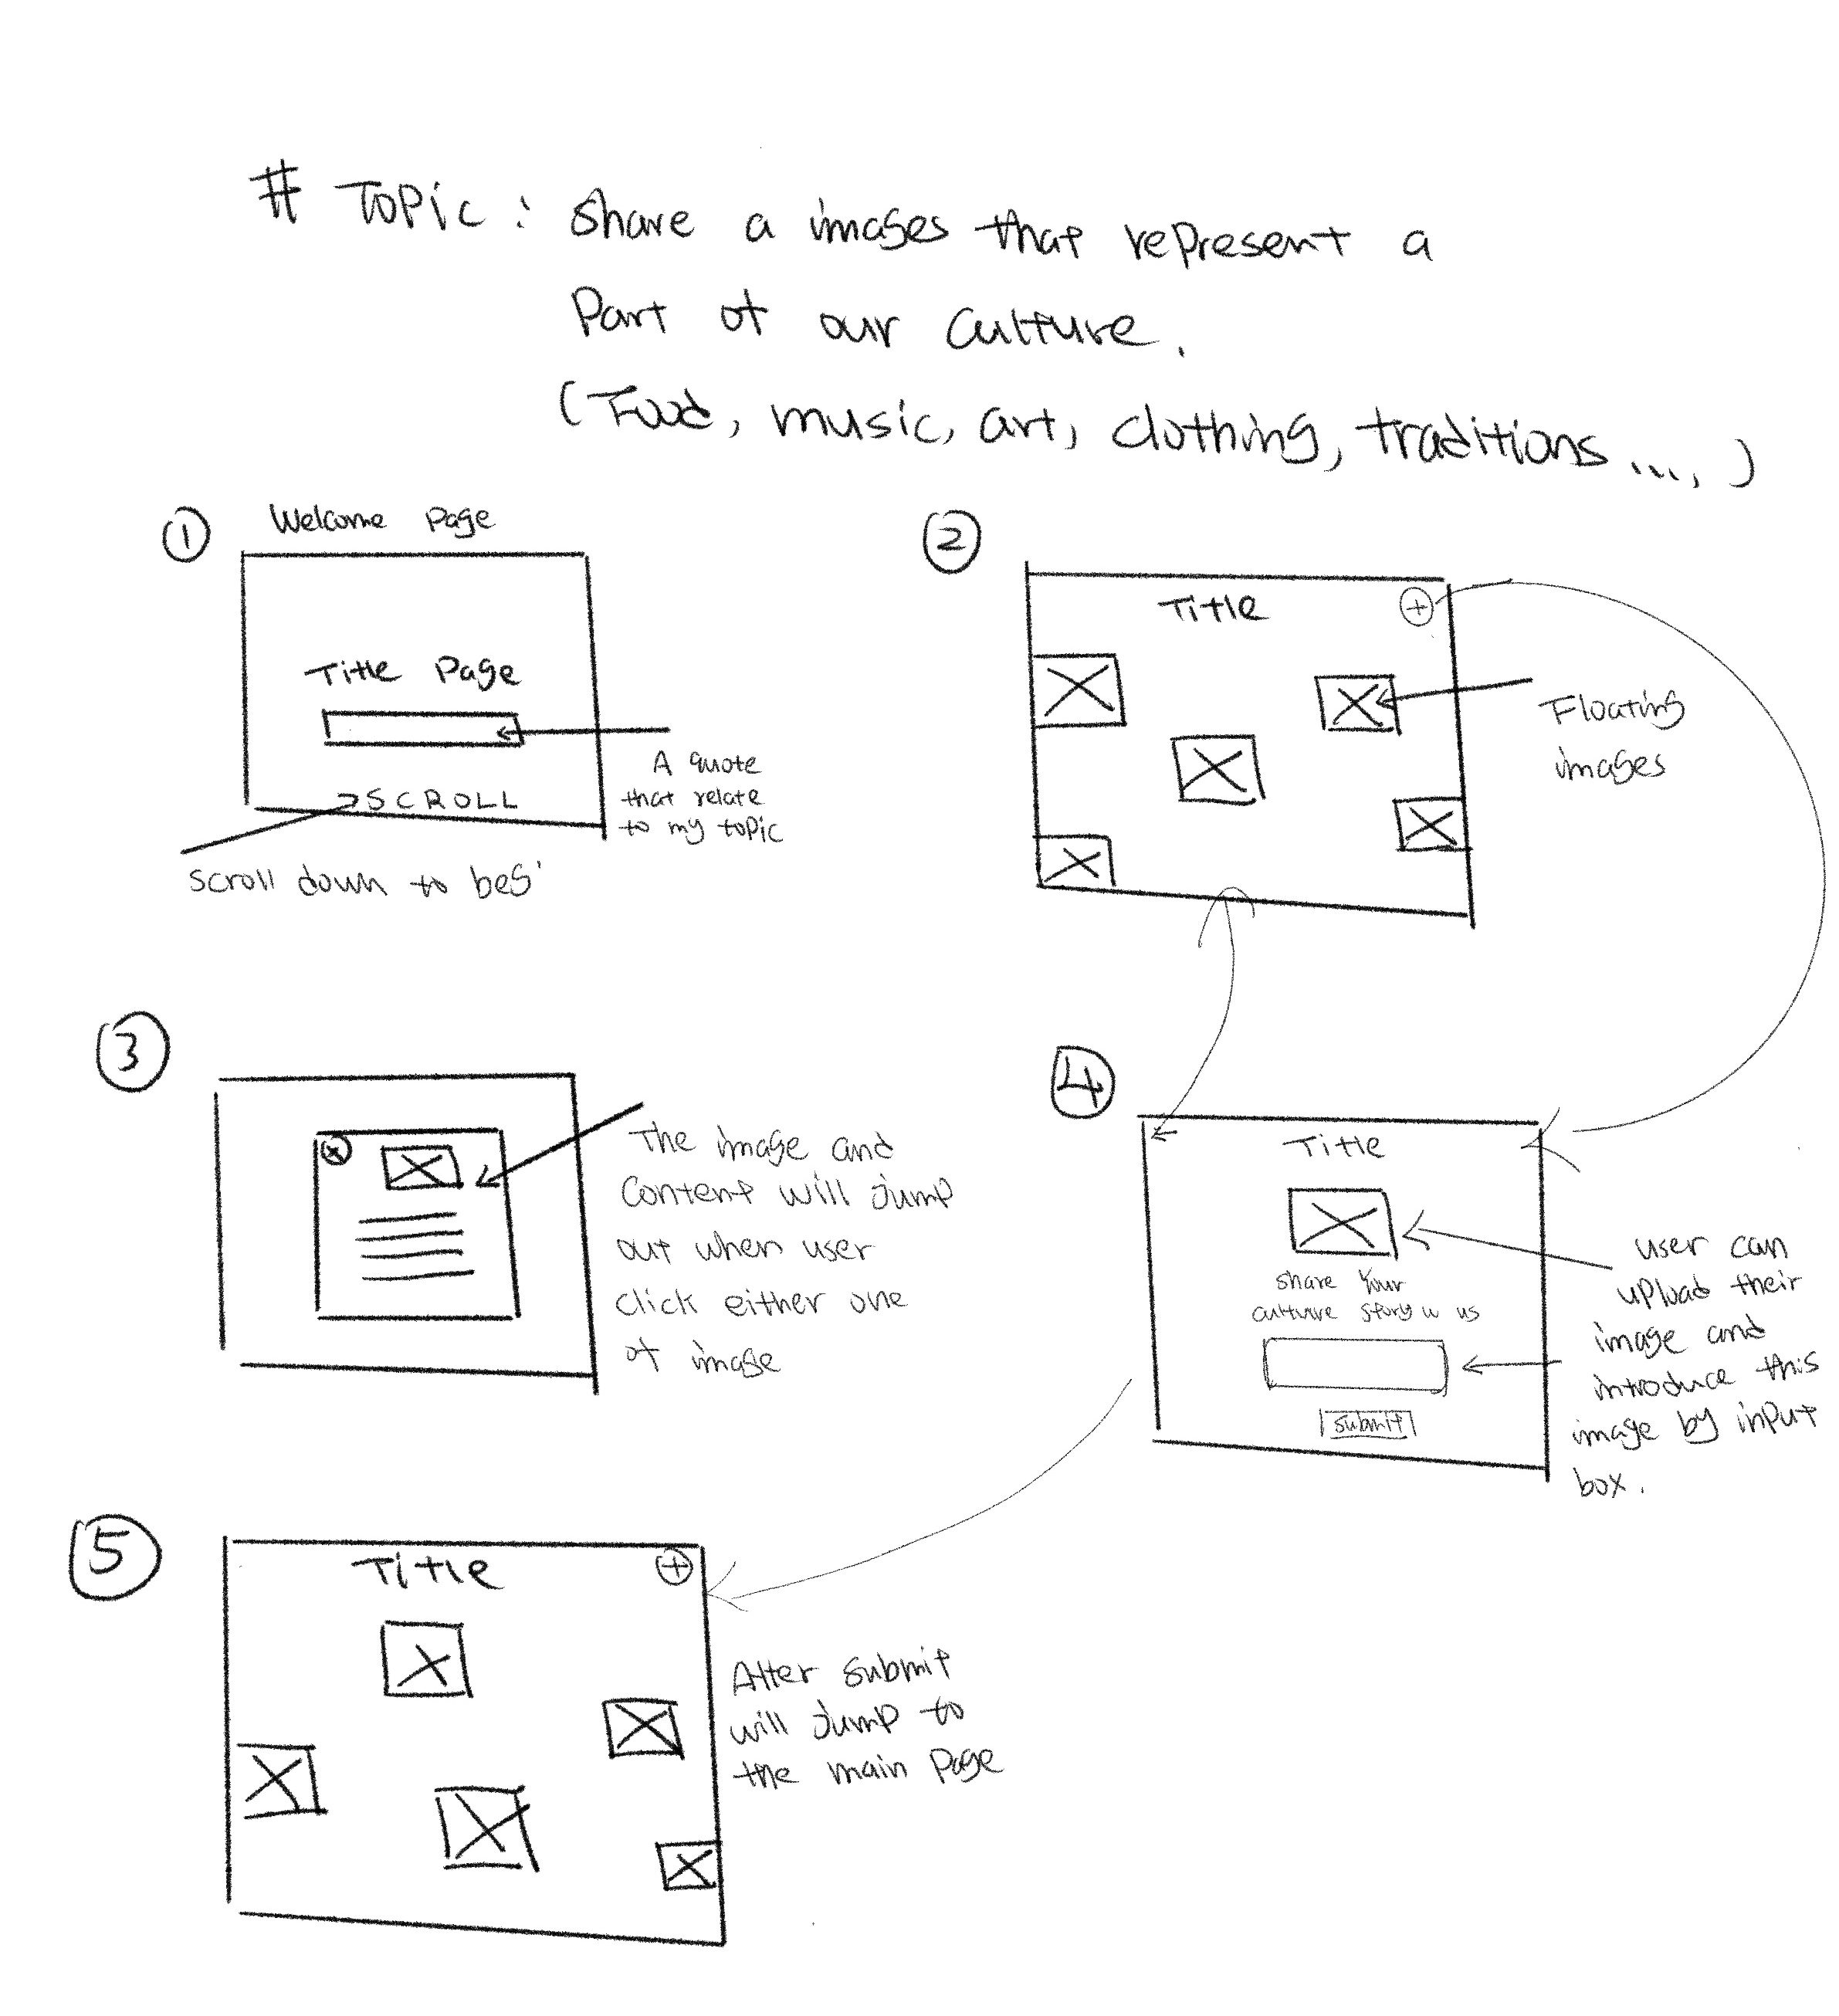 # Topic : Share a images that represent a
Part of our culture.
(Food, music, art, clothing, traditions ..., )
① Welcome Page
Title Page
SCROLL
A quote
that relate
to my topic
Scroll down to beg'
②
Title
+
Floating
images
③
x
The image and
Content will jump
out when user
click either one
of image
④
Title
share your
culture story w us
submit
user can
upload their
image and
introduce this
image by input
box.
⑤
Title
+
After submit
will jump to
the main page